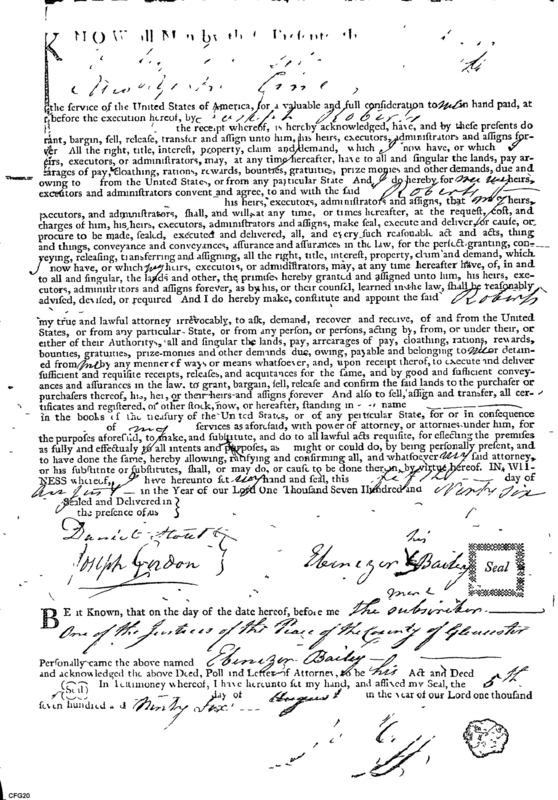 KNOW all Men by these Presents, that
New Line
the service of the United States of America, for a valuable and full consideration to me in hand paid, at
r before the execution hereof, by Joseph Roberts
the receipt whereof, is hereby acknowledged, have, and by these presents do
rant, bargin, sell, release, transfer and assign unto him, his heirs, executors, administrators and assigns for-
ver All the right, title, interest, property, claim and demand, which I now have, or which
eirs, executors, or administrators, may, at any time hereafter, have to all and singular the lands, pay ar-
earages of pay, cloathing, rations, rewards, bounties, gratuities, prize monies and other demands, due and
owing to from the United States, or from any particular State And I do hereby, for me my heirs,
executors and administrators convent and agree, to and with the said Roberts
his heirs, executors, administrators and assigns, that my heirs,
executors, and administrators, shall, and will at any time, or times hereafter, at the request, cost, and
charges of him, his heirs, executors, administrators and assigns, make seal, execute and deliver, or cause, or
procure to be made, sealed, executed and delivered, all and every such reasonable act and acts, thing
and things, conveyance and conveyances, assurance and assurances in the law, for the perfect granting, con-
veying, releasing, transferring and assigning, all the right, title, interest, property, claim and demand, which
I now have, or which my heirs, executors, or administrators, may, at any time hereafter have, of, in and
to all and singular, the lands and other, the primises hereby granted and assigned unto him, his heirs, exe-
cutors, administrators and assigns forever, as by his, or their counsel, learned in the law, shall be reasonably
advised, devised, or required And I do hereby make, constitute and appoint the said Roberts
my true and lawful attorney irrevocably, to ask, demand, recover and receive, of and from the United
States, or from any particular State, or from any person, or persons, acting by, from, or under their, or
either of their Authority, all and singular the lands, pay, arrearages of pay, cloathing, rations, rewards,
bounties, gratuities, prize-monies and other demands due, owing, payable and belonging to me or detain-
ed from me by any manner of ways or means whatsoever, and, upon receipt therof, to execute and deliver
sufficient and requisite receipts, releases, and acquitances for the same, and by good and sufficient convey-
ances and assurances in the law. to grant, bargain, sell, release and confirm the said lands to the purchaser or
purchasers thereof, his, her, or their heirs and assigns forever And also to sell, assign and transfer, all cer-
tificates and registered, or other stock, now, or hereafter, standing in name
in the books of the treasury of the United States, or of any particular State, for or in consequence
of my services as aforesaid, with power of attorney, or attornies under him, for
the purposes aforesaid, to make, and substitute, and do to all lawful acts requisite, for effecting the premises
as fully and effectually to all intents and purposes, as might or could do, by being personally present, and
to have done the same, hereby allowing, ratifying and confirming all, and whatsoever my said attorney,
or his substitute or substitutes, shall, or may do, or cause to be done theron, by virtue hereof. IN, WIT-
NESS whereof, I have hereunto set my hand and seal, this fifth day of
August in the Year of our Lord One Thousand Seven Hundred and Ninty Six
Sealed and Delivered in
the presence of us
Daniel Stout
Joseph Gordon
his
Ebenezer X Bailey
ment
Seal
BE it Known, that on the day of the date hereof, before me the subscriber
One of the Justices of the Peace of the County of Gloucester
Personally came the above named Ebenezer Bailey
and acknowledged the above Deed, Poll and Letter of Attorney, to be his Act and Deed
(Seal) In Testimoney whereof, I have hereunto set my hand, and affixed my Seal, the 5th
day of August in the year of our Lord one thousand
seven hundred and Ninty Six
CFG20